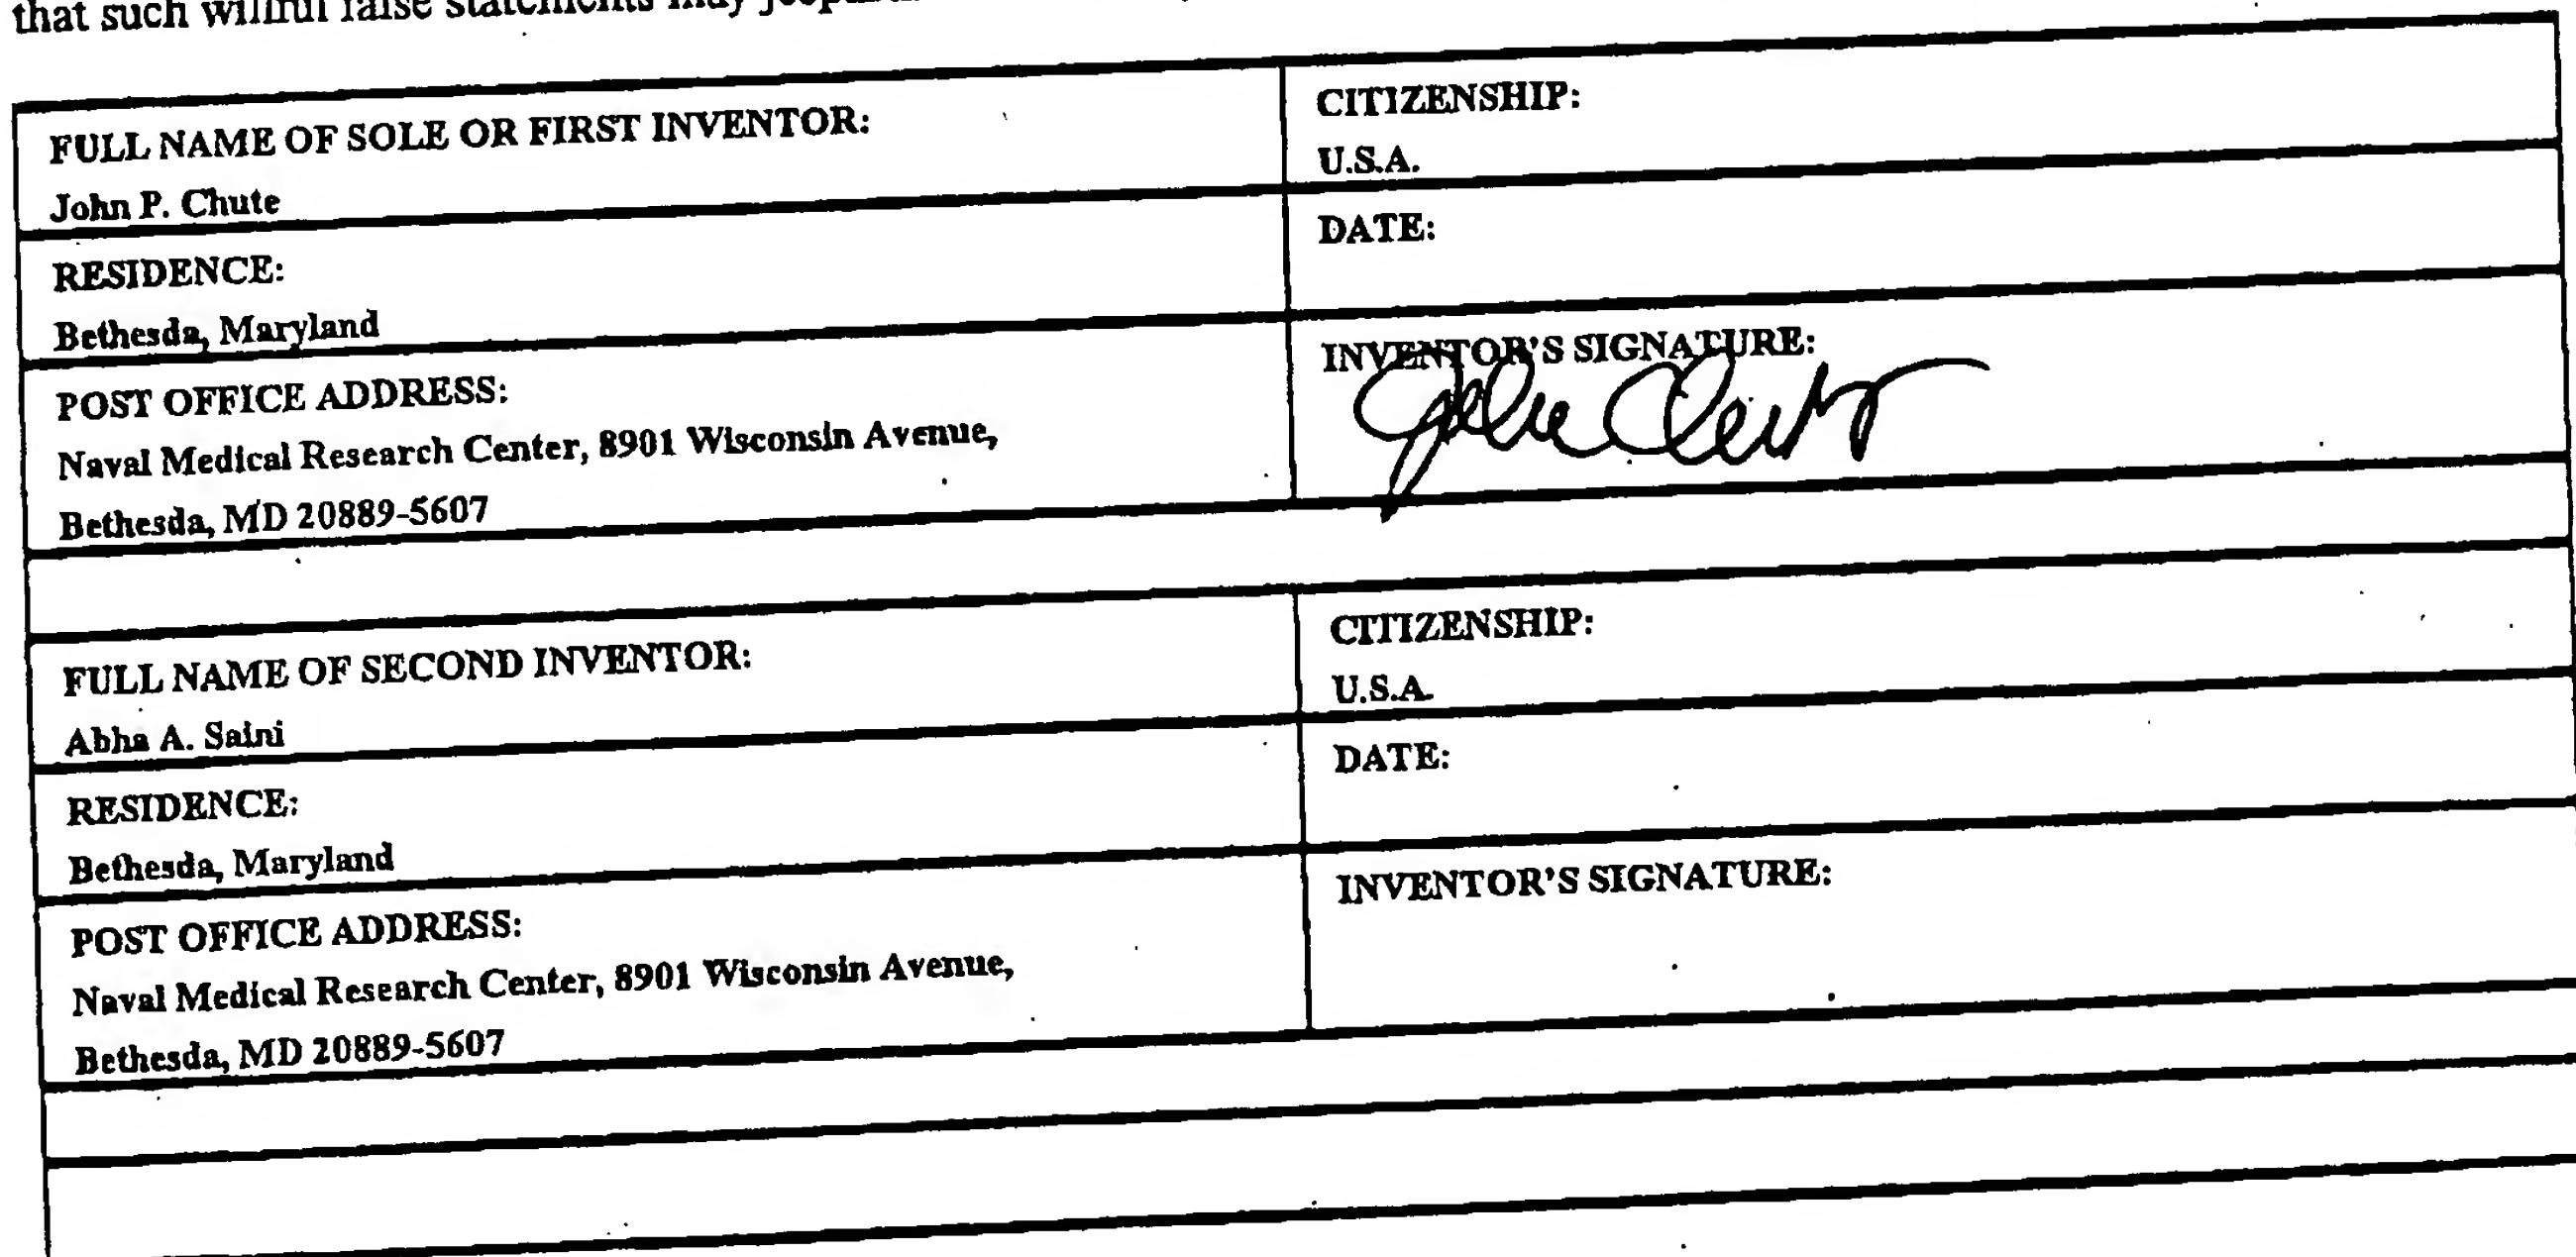 that such willful false statements may
FULL NAME OF SOLE OR FIRST INVENTOR:
John P. Chute
CITIZENSHIP:
U.S.A.
RESIDENCE:
Bethesda, Maryland
DATE:
POST OFFICE ADDRESS:
Naval Medical Research Center, 8901 Wisconsin Avenue,
Bethesda, MD 20889-5607
INVENTOR'S SIGNATURE:
John Chute
FULL NAME OF SECOND INVENTOR:
Abha A. Saini
CITIZENSHIP:
U.S.A.
RESIDENCE:
Bethesda, Maryland
DATE:
POST OFFICE ADDRESS:
Naval Medical Research Center, 8901 Wisconsin Avenue,
Bethesda, MD 20889-5607
INVENTOR'S SIGNATURE: